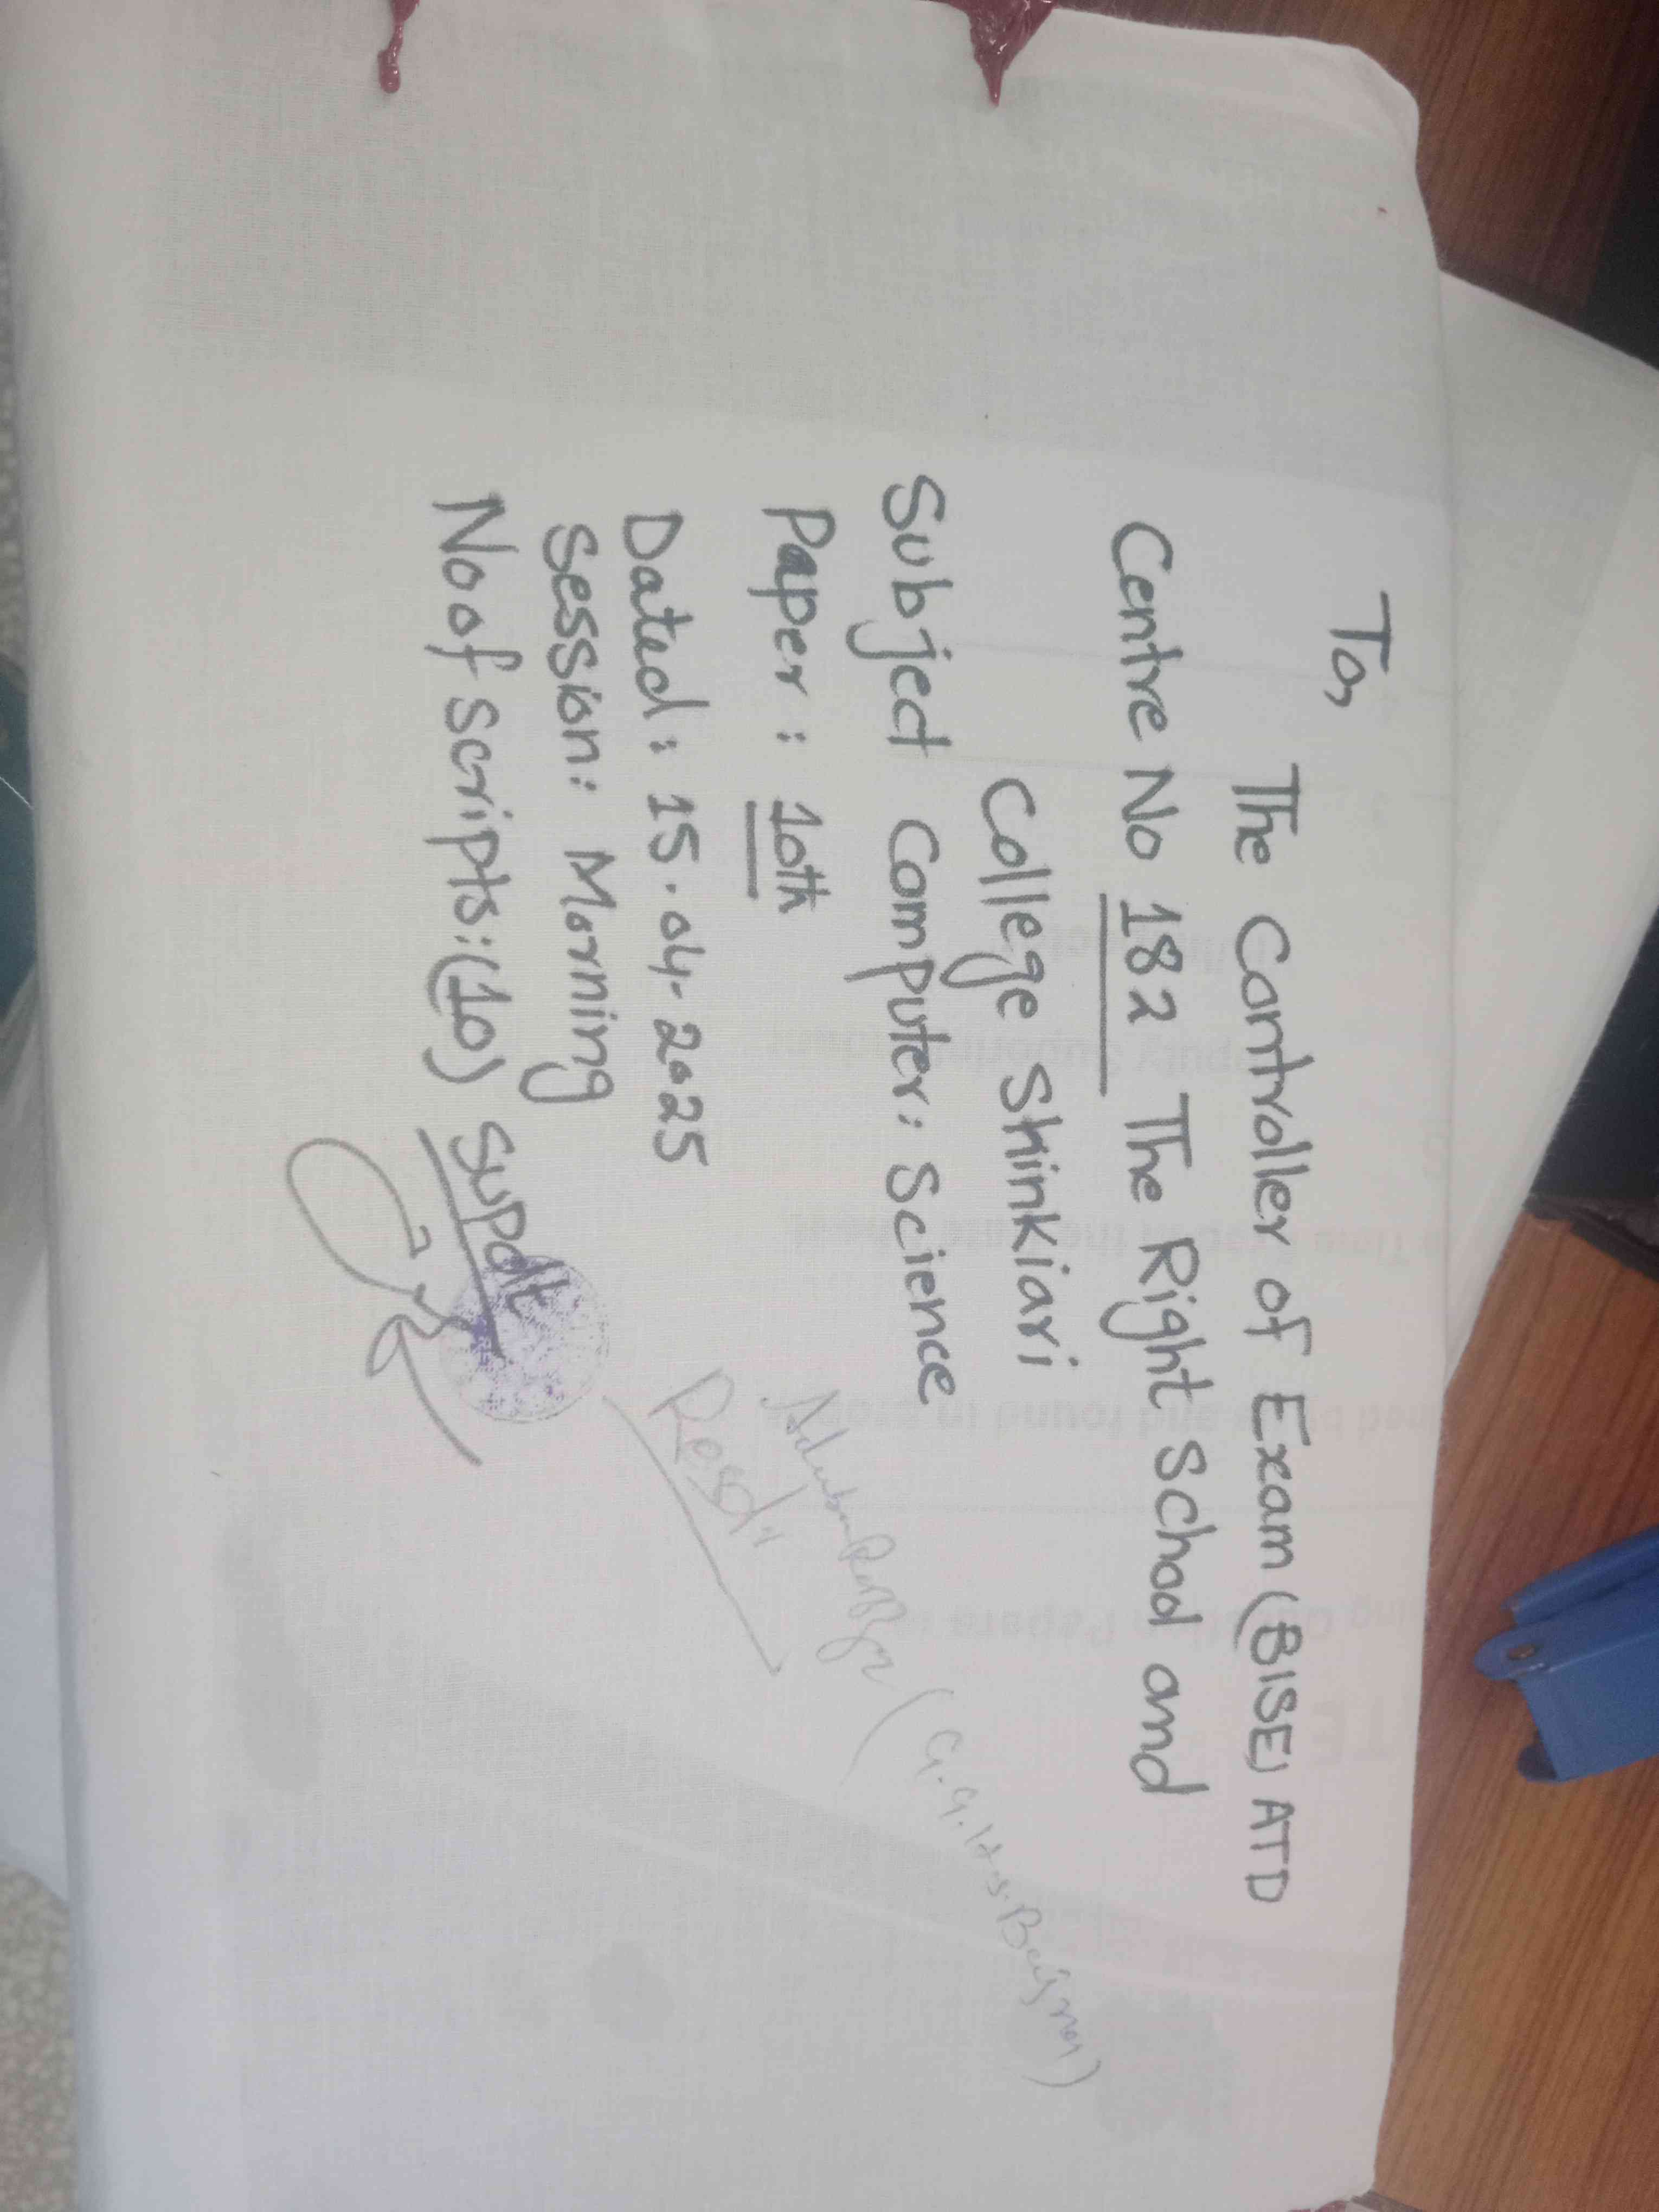 To,
The Controller of Exam (BISE) ATD
Centre No 182 The Right School and
College Shinkiari
Subject Computer: Science
Paper: 10th
Dated: 15.04.2025
Session: Morning
No of Scripts: (10) Supdt